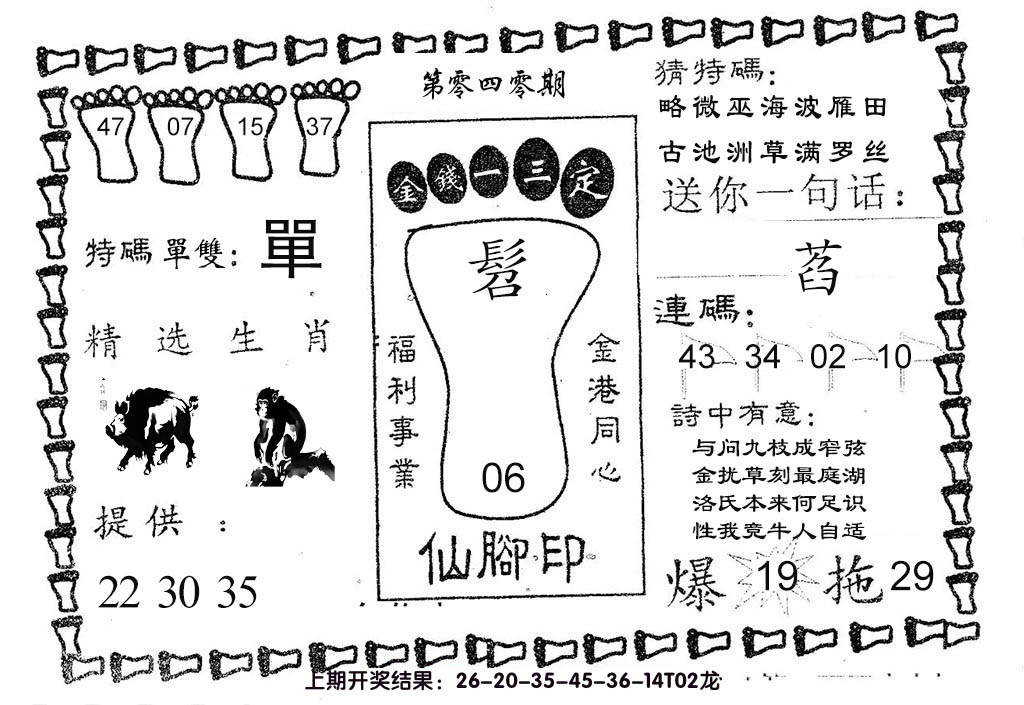 第零四零期
47 07 15 37
特碼單雙: 單
精选生肖
提供:
22 30 35
金錢一三定
髫
福利事業
金港同心
06
仙腳印
猜特碼:
略微巫海波雁田
古池洲草满罗丝
送你一句话:
萏
連碼:
43 34 02 10
詩中有意:
与问九枝成窄弦
金扰草刻最庭湖
洛氏本来何足识
性我竞牛人自适
爆 19 拖 29
上期开奖结果: 26-20-35-45-36-14T02龙